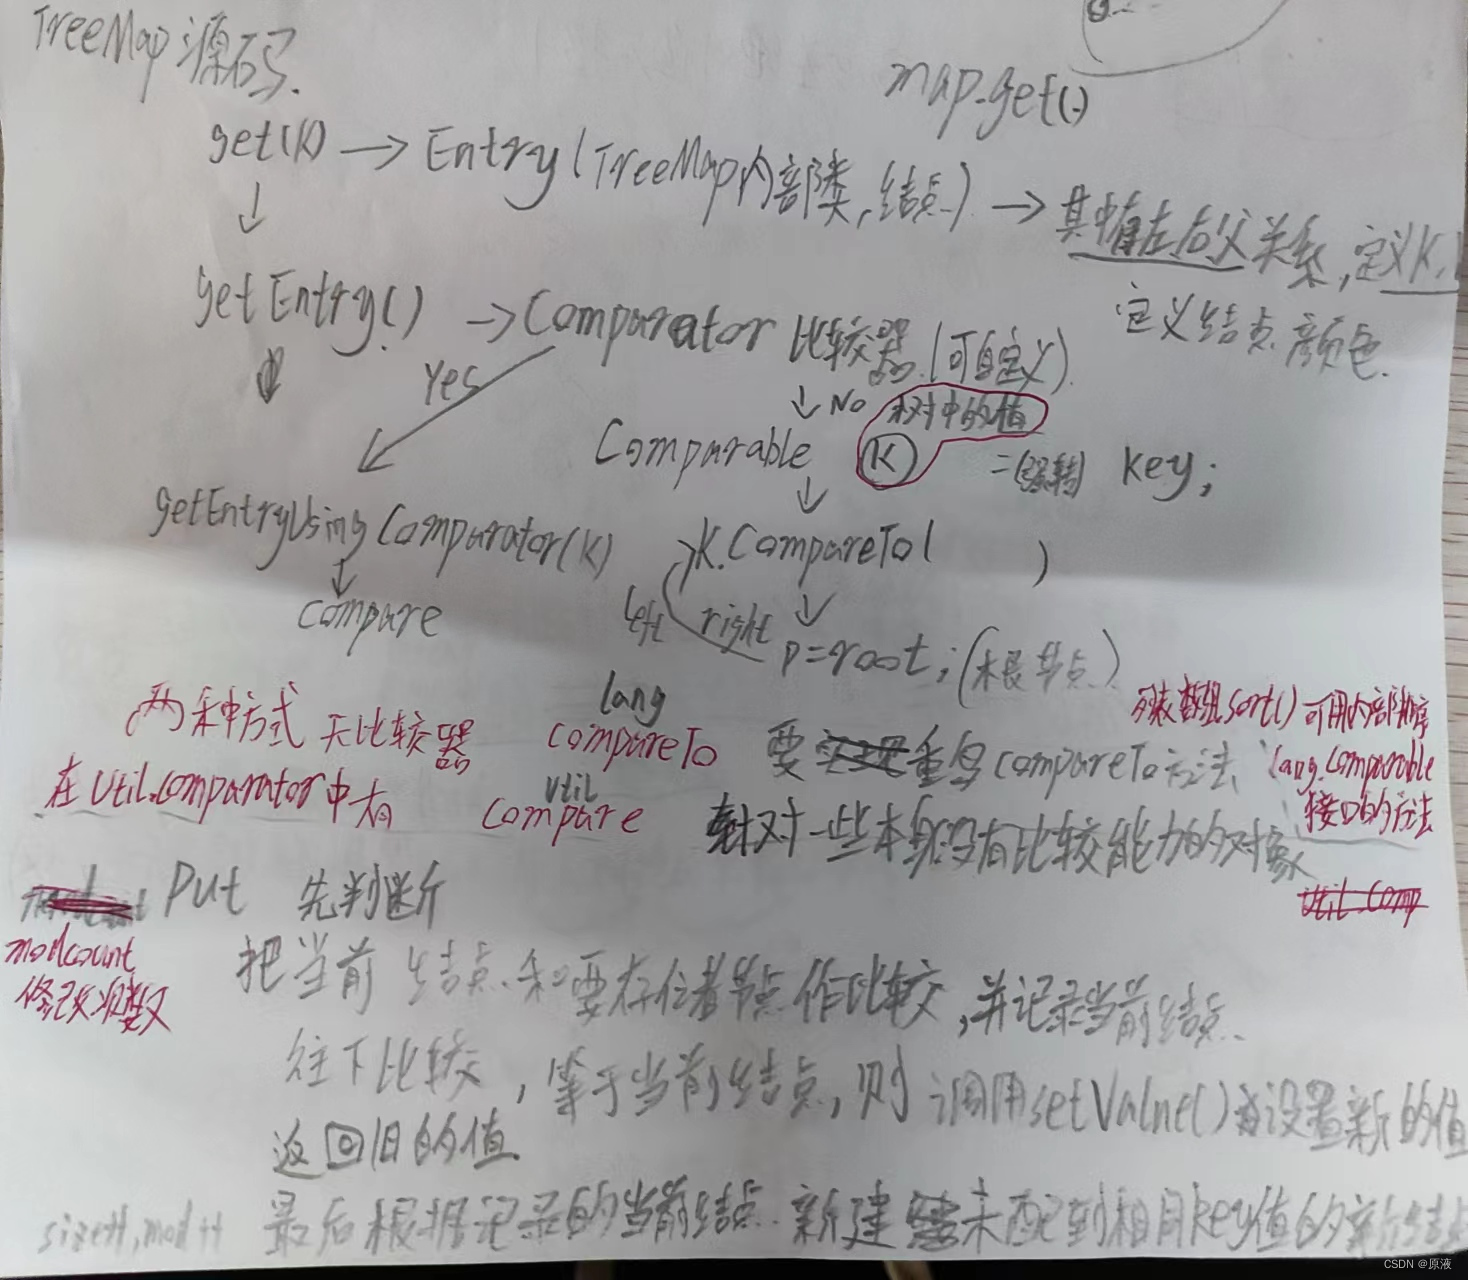 TreeMap 源码.
map.get()
get(K) → Entry (TreeMap内部类,结点) → 其中有左右父关系,定义K,
定义结点颜色.
getEntry() → Comparator 比较器(可自定义)
Yes
↓ No 树中的值
Comparable K =(强转) key;
getEntryUsingComparator(K) K.compareTo( )
compare
left right p=root;(根节点)
两种方式 无比较器 lang compareTo 要重写compareTo方法
列表数组sort()可用内部排序
lang.Comparable
接口的方法
在Util.comparator中有 util compare 针对一些本身没有比较能力的对象
Util.Comp
Put 先判断
modcount
修改次数
把当前结点和要存住着节点作比较,并记录当前结点.
往下比较,等于当前结点,则调用setValue()设置新的值
返回旧的值.
size++,mod++ 最后根据记录的当前结点 新建未匹配到相同key值的新结点
CSDN @原液